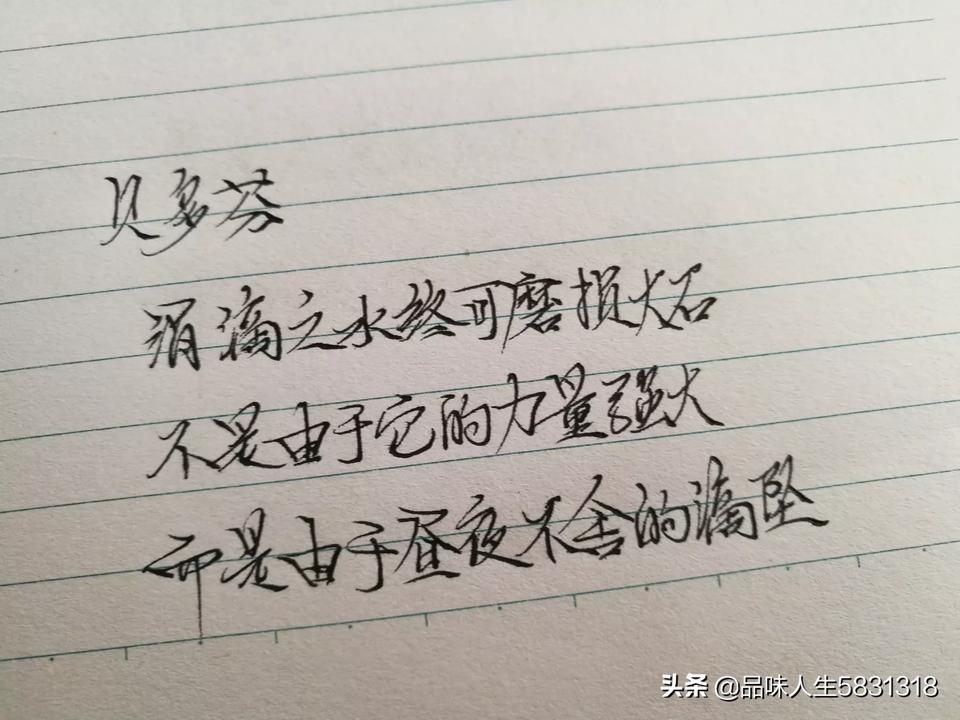 贝多芬
涓滴之水终可磨损大石
不是由于它的力量强大
而是由于昼夜不舍的滴坠
头条 @品味人生5831318